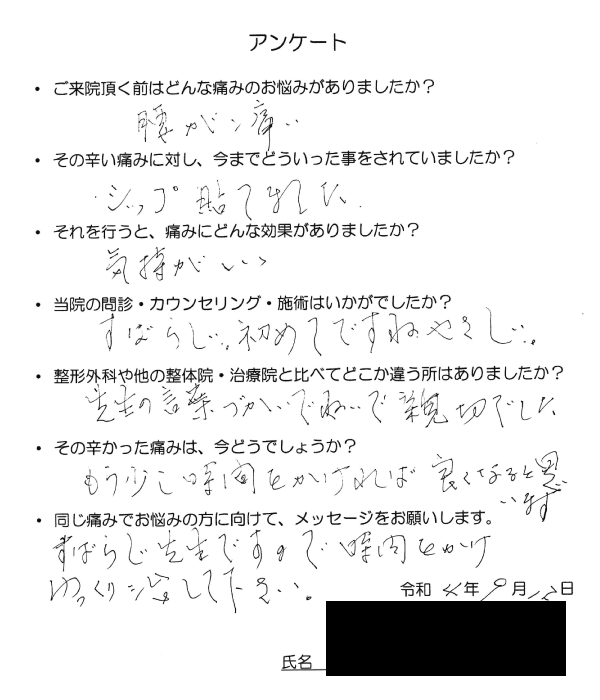 アンケート
・ ご来院頂く前はどんな痛みのお悩みがありましたか？
腰が痛い
・ その辛い痛みに対し、今までどういった事をされていましたか？
シップ貼て
・ それを行うと、痛みにどんな効果がありましたか？
気持がいい
・ 当院の問診・カウンセリング・施術はいかがでしたか？
すばらしい。初めてですねやさしい。
・ 整形外科や他の整体院・治療院と比べてどこか違う所はありましたか？
先生の言葉づかいでねいで親切でした
・ その辛かった痛みは、今どうでしょうか？
もう少し時間をかければ良くなると思
います
・ 同じ痛みでお悩みの方に向けて、メッセージをお願いします。
すばらし先生ですので時間をかけ
ゆっくり治して下さい。
令和 年9月 日
氏名